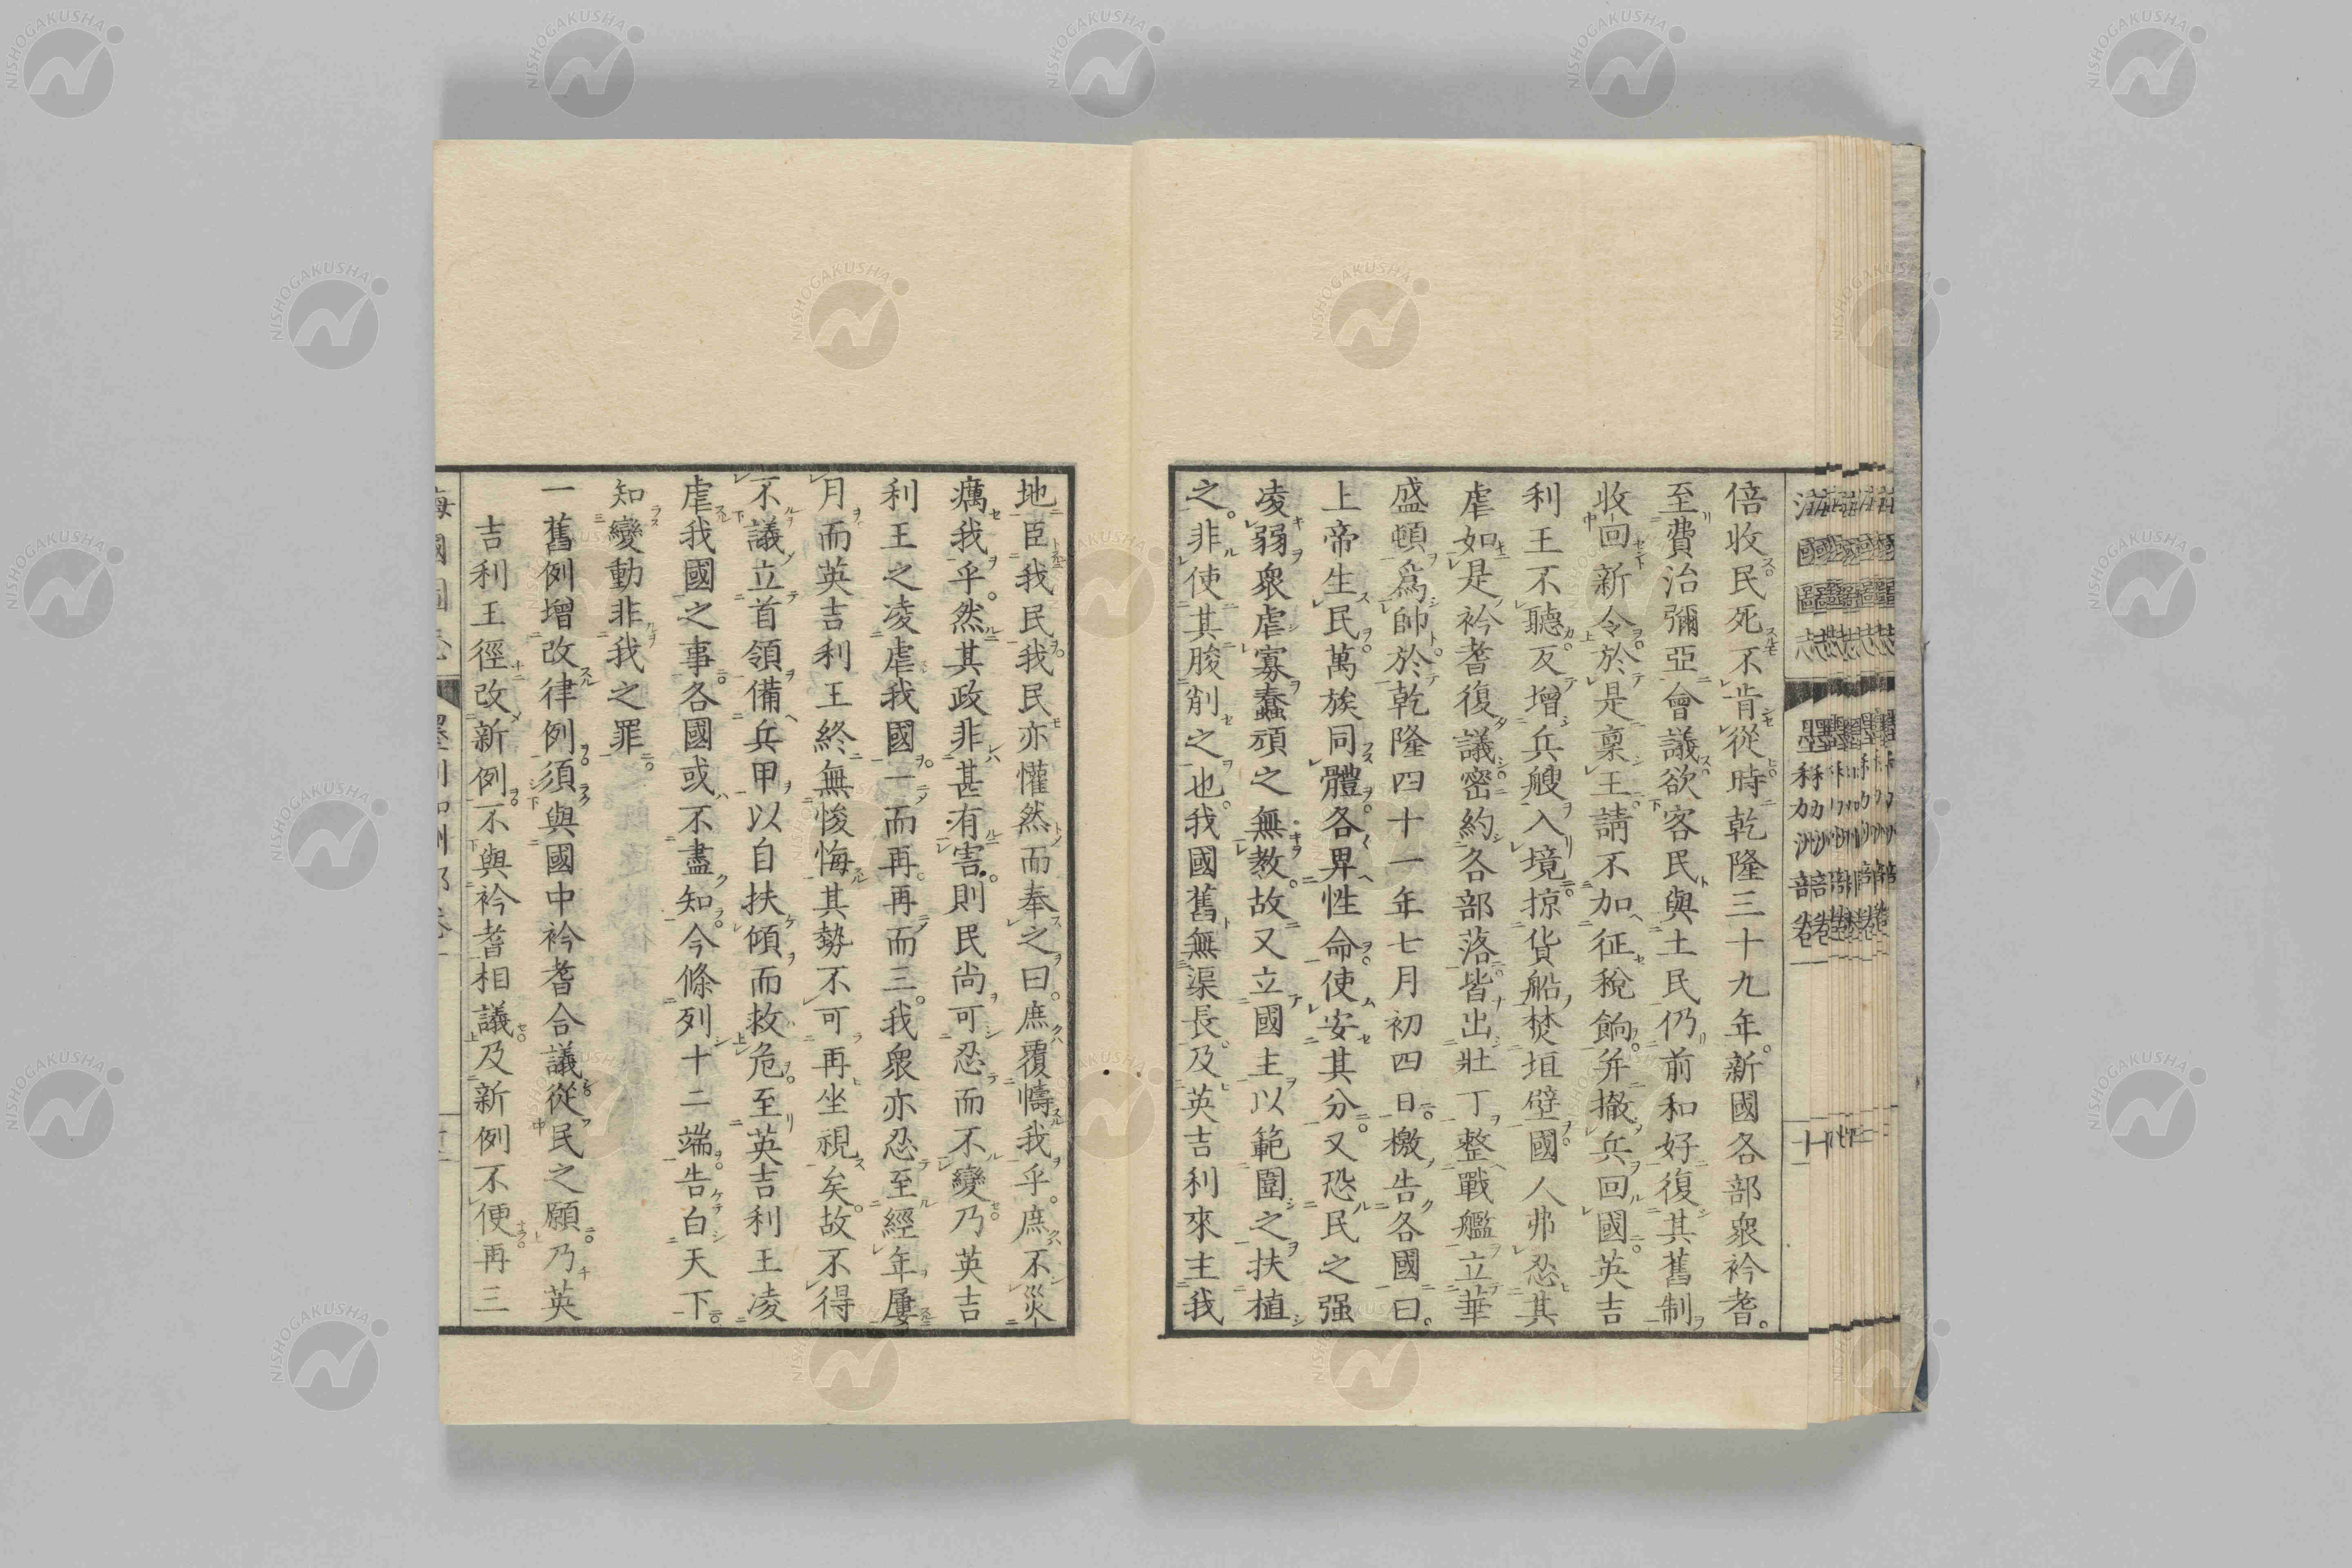 倍收民死不肯從時乾隆三十九年。新國各部衆衿耆。
至費治彌亞會議欲客民與土民仍前和好復其舊制
收回新令於是稟王請不加征稅餉并撤兵回國。英吉
利王不聽反增兵艘入境掠貨船焚垣壁國人弗忍其
虐如是衿耆復議密約各部落皆出壯丁整戰艦立華
盛頓爲帥於乾隆四十一年七月初四日檄告各國曰。
上帝生民萬族同體各畀性命使安其分又恐民之强
凌弱衆虐寡蠢頑之無教故又立國主以範圍之扶植
之。非使其朘削之也我國舊無渠長及英吉利來主我
地臣我民我民亦懽然而奉之曰。庶覆幬我乎。庶不災
癘我乎。然其政非甚有害則民尚可忍而不變乃英吉
利王之凌虐我國一而再再而三。我衆亦忍至經年屢
月而英吉利王終無悛悔其勢不可再坐視矣。故不得
不議立首領備兵甲以自扶傾而救危至英吉利王凌
虐我國之事各國或不盡知今條列十二端告白天下
知變動非我之罪
一舊例增改律例須與國中衿耆合議從民之願乃英
吉利王徑改新例不與衿耆相議及新例不便再三
海國圖志 墨利加洲部卷一 十一
NISHOGAKUSHA